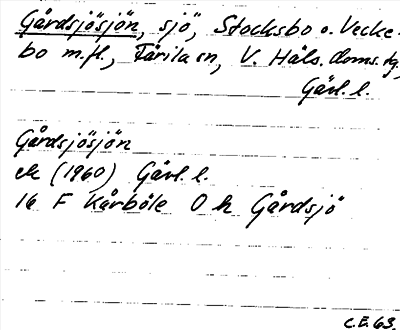 Gårdsjösjön, sjö, Stocksbo o. Vecke-
bo m.fl., Färila sn, V. Häls. doms. tg,
Gävl. l.
Gårdsjösjön
ek (1960) Gävl. l.
16 F Kårböle O h Gårdsjö
C.E. 63.